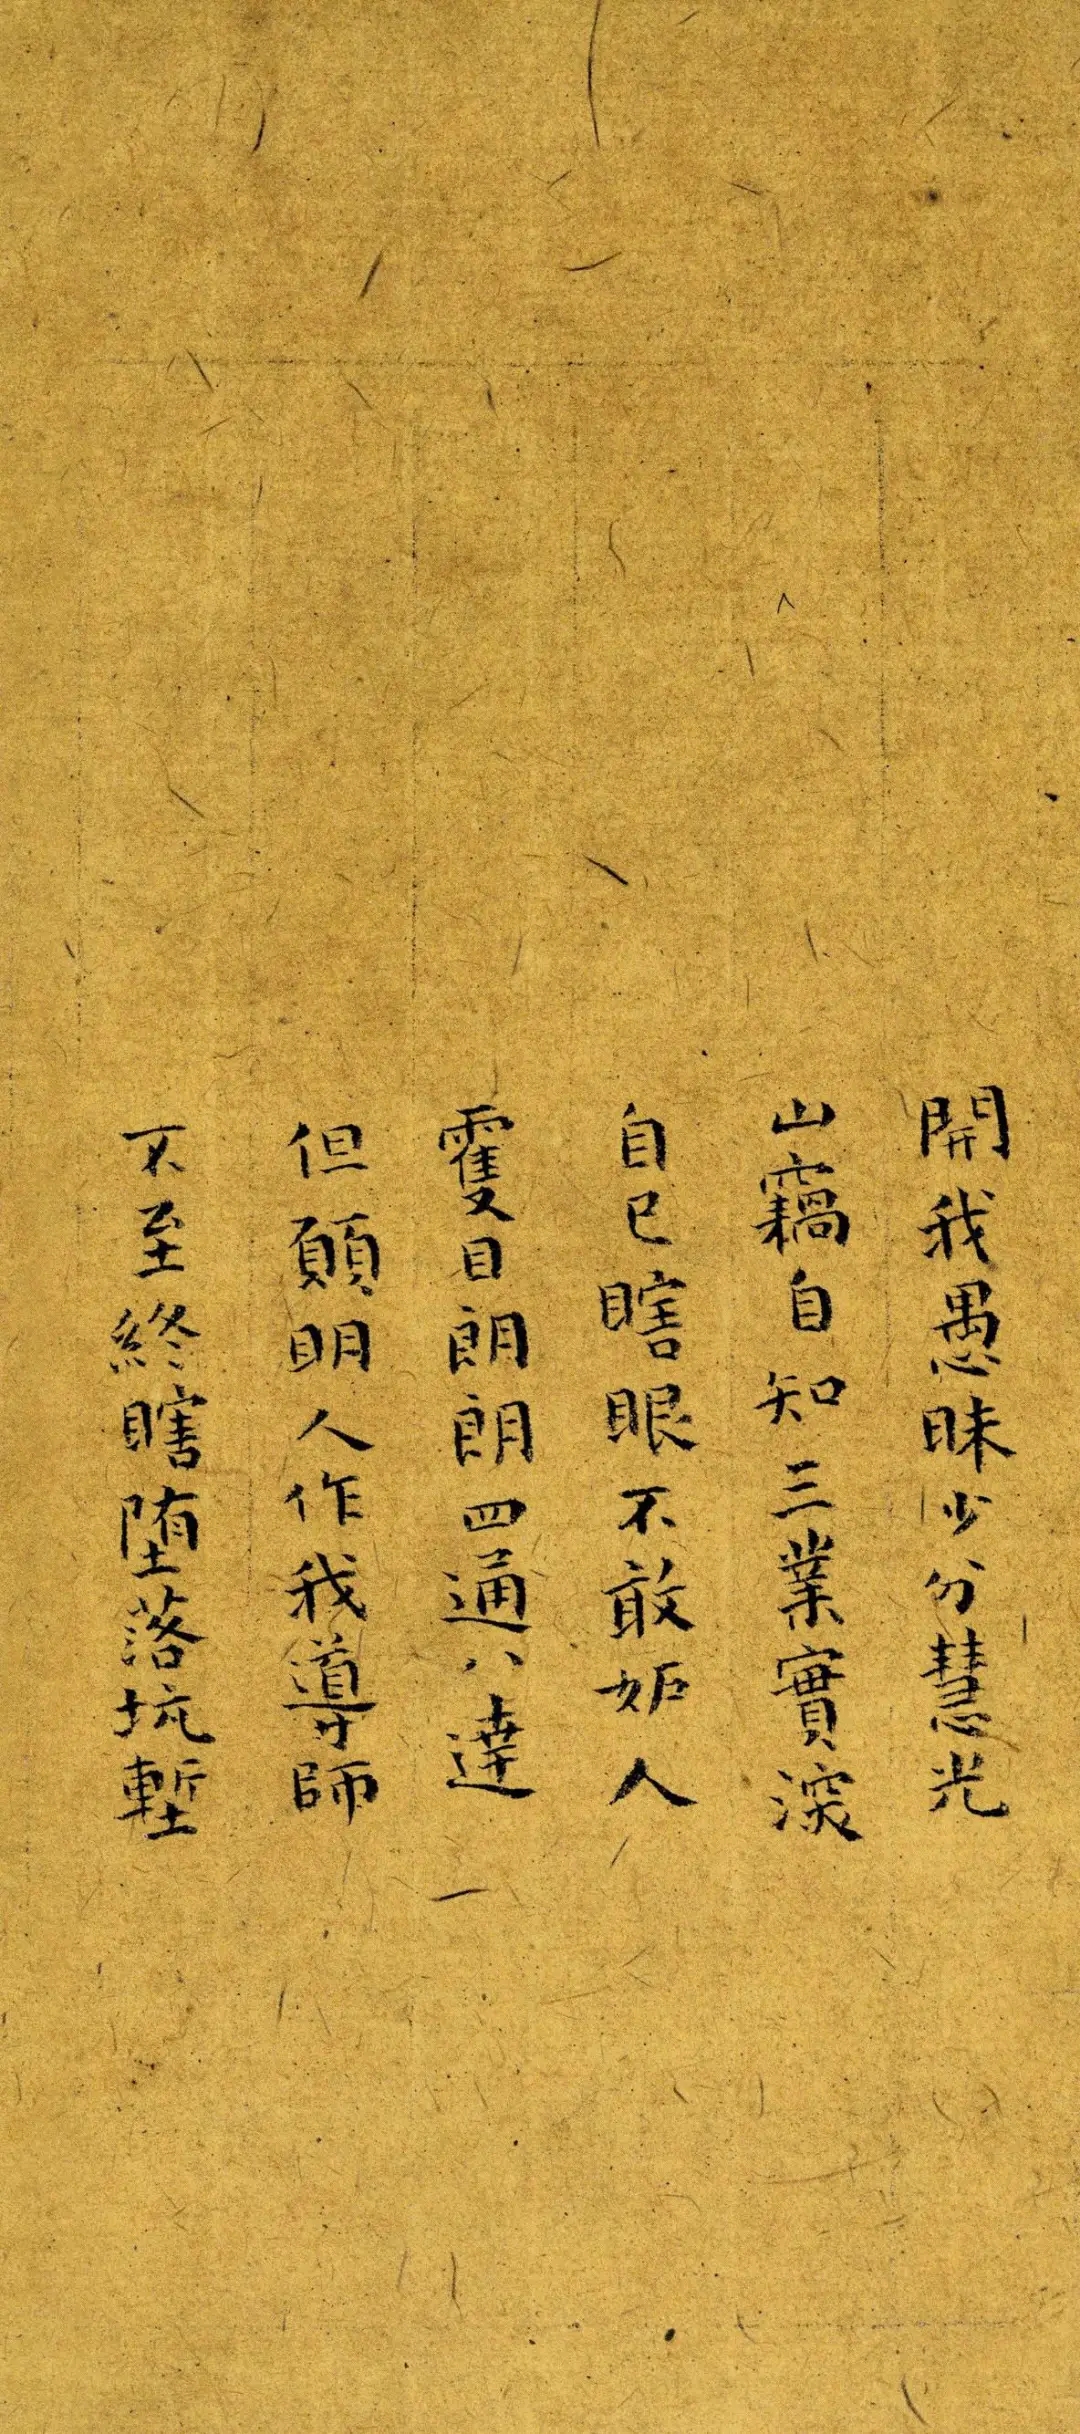 開我愚昧少分慧光
山竊自知三業實深
自己瞎眼不敢妬人
䨥目朗朗四通八達
但願眀人作我導師
不至終瞎堕落坑塹